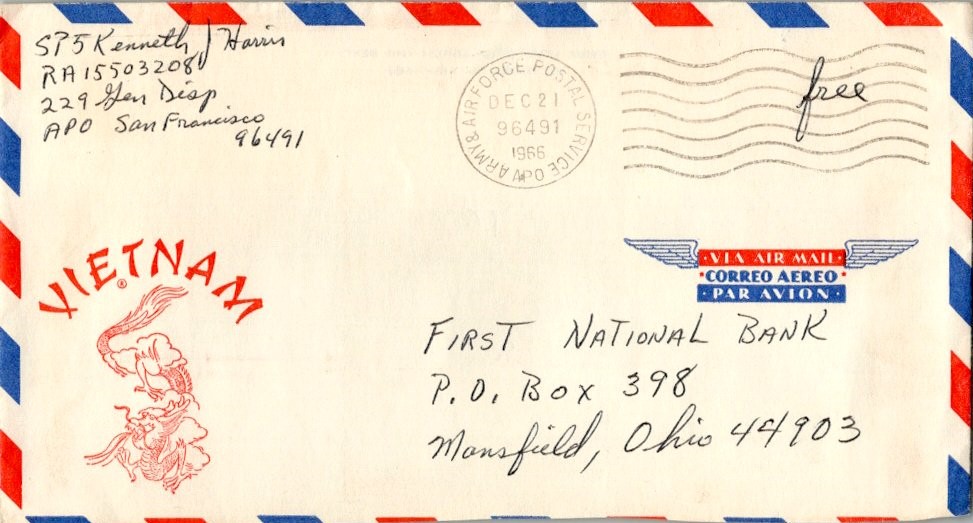 SP5 Kenneth J Harris
RA15503208
229 Gen Disp
APO San Francisco
96491
ARMY & AIR FORCE POSTAL SERVICE
DEC 21
96491
1966
APO
free
VIA AIR MAIL
CORREO AEREO
PAR AVION
VIETNAM
®
FIRST NATIONAL BANK
P.O. Box 398
Mansfield, Ohio 44903